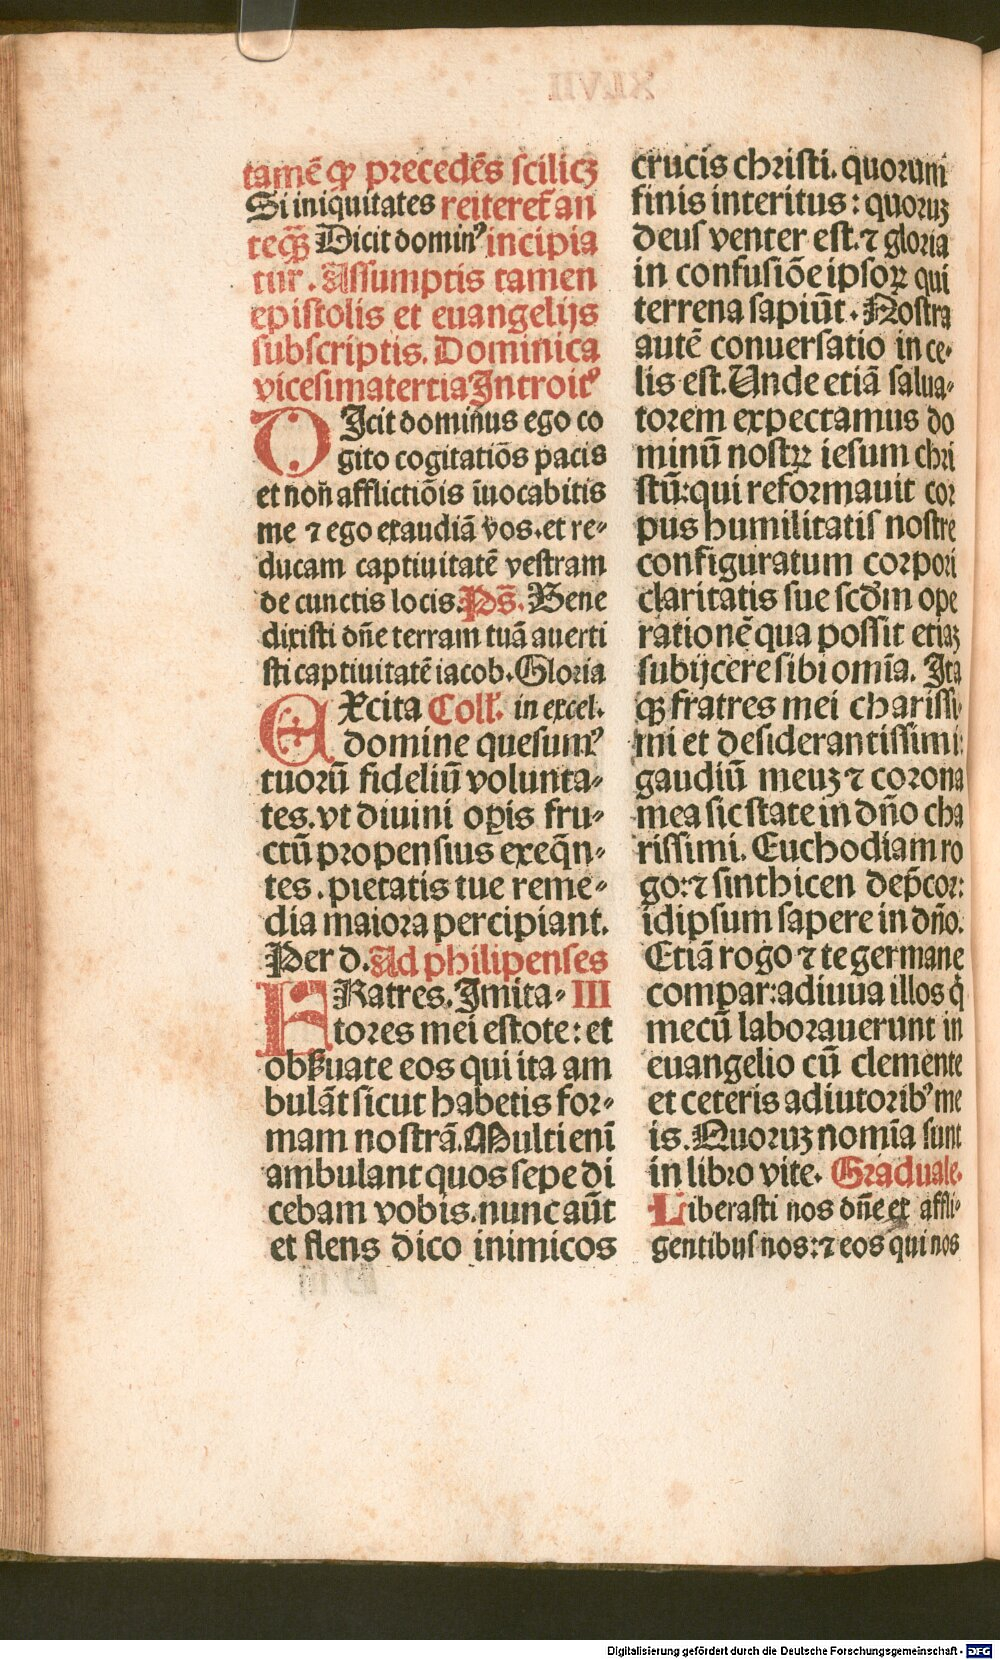 tamē ꝙ precedēs scilicꝫ
Si iniquitates reiteret̄ an
teqꝫ̄ Dicit dominꝰ incipia
tur. Assumptis tamen
epistolis et euangelijs
subscriptis. Dominica
vicesimatertia Introitꝰ
DIcit dominus ego co
gito cogitatiōs pacis
et non̄ afflictiōis īuocabitis
me ⁊ ego exaudiā vos. et re⸗
ducam captiuitatē vestram
de cunctis locis. Ps̄. Bene
dixisti dn̄e terram tuā auerti
sti captiuitatē iacob. Gloria
EXcita Coll'. in excel.
domine quesumꝰ
tuorū fideliū volunta⸗
tes. vt diuini oꝑis fru⸗
ctū propensius exeq̄n⸗
tes. pietatis tue reme⸗
dia maiora percipiant.
Per d. Ad philipenses
FRatres. Imita⸗ III
tores mei estote: et
obẜuate eos qui ita am
bulāt sicut habetis for⸗
mam nostrā. Multi enī
ambulant quos sepe di
cebam vobis. nunc aūt
et flens dico inimicos
crucis christi. quorum
finis interitus: quoruꝫ
deus venter est. ⁊ gloria
in confusiōe ipsoꝝ qui
terrena sapiūt. Nostra
autē conuersatio in ce⸗
lis est. Unde etiā salua⸗
torem expectamus do
minū nostꝝ iesum chri
stū: qui reformauit cor
pus humilitatis nostre
configuratum corpori
claritatis sue scd̄m ope
rationē qua possit etiaꝫ
subijcere sibi omīa. Ita
qꝫ fratres mei charissi⸗
mi et desiderantissimi:
gaudiū meuꝫ ⁊ corona
mea sic state in dn̄o cha
rissimi. Euchodiam ro
go: ⁊ sinthicen dep̄cor:
idipsum sapere in dn̄o.
Etiā rogo ⁊ te germane
compar: adiuua illos q̇
mecū laborauerunt in
euangelio cū clemente
et ceteris adiutoribꝰ me
is. Quoruꝫ nomīa sunt
in libro vite. Graduale.
Liberasti nos dn̄e ex affli⸗
gentibus nos: ⁊ eos qui nos
Digitalisierung gefördert durch die Deutsche Forschungsgemeinschaft - DFG